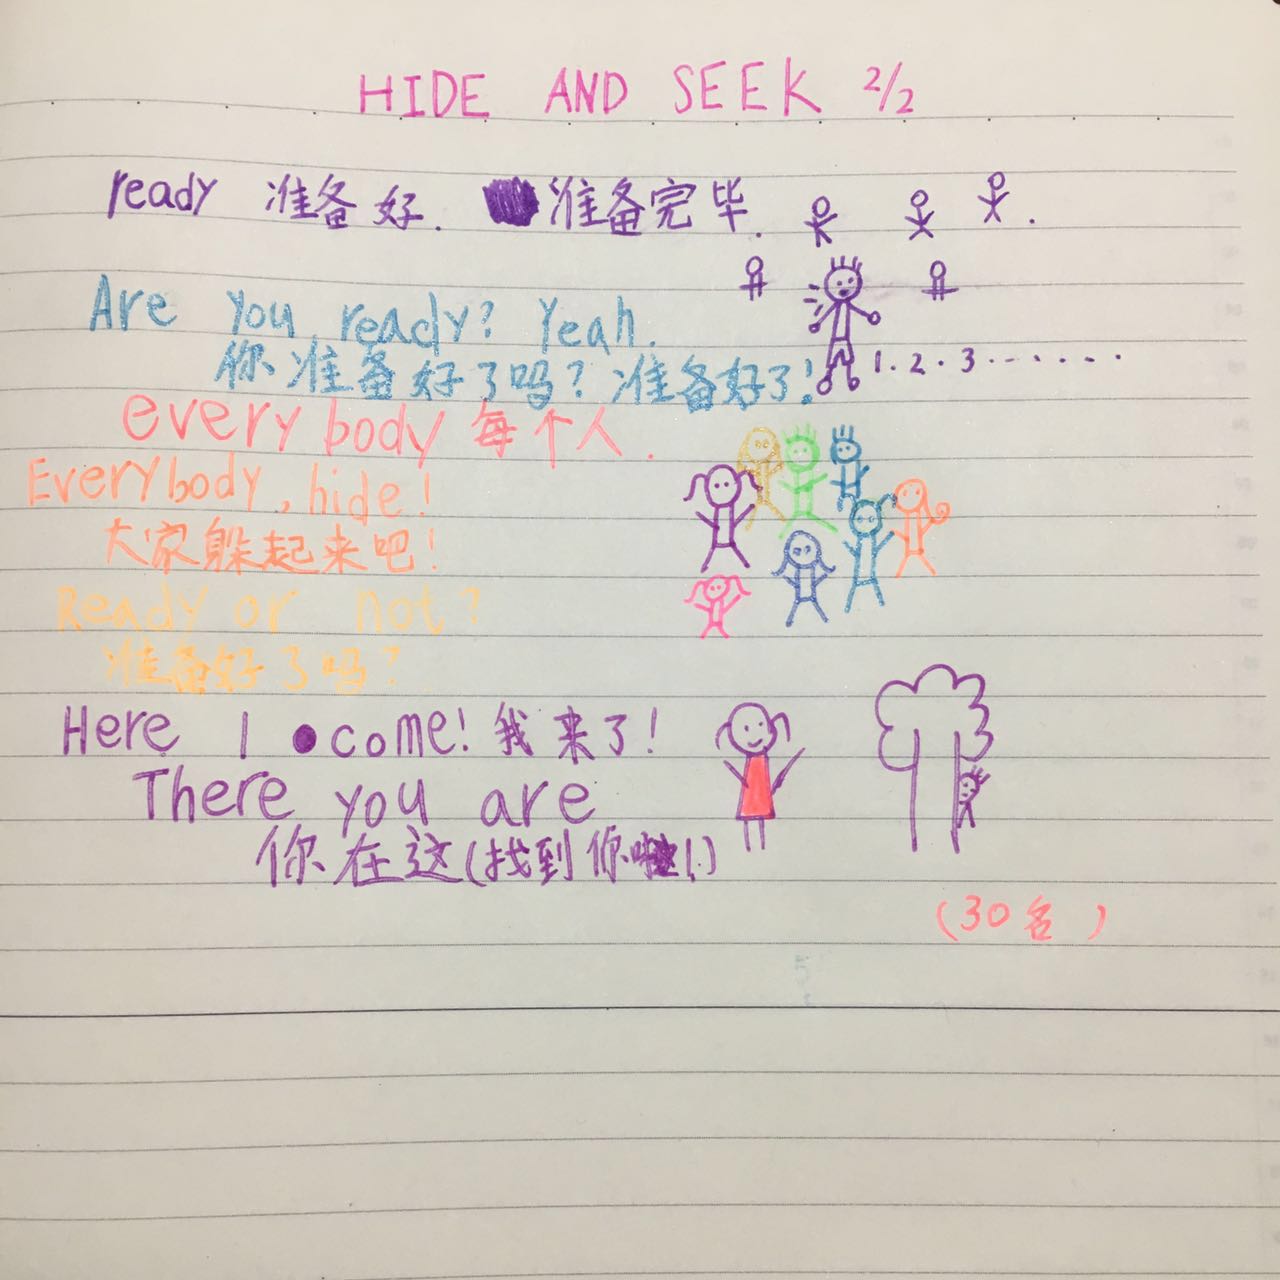 HIDE AND SEEK 2/2
ready 准备好. 准备完毕.
Are you ready? Yeah.
1.2.3.......
你准备好了吗? 准备好了!
every body 每个人.
Everybody, hide!
大家躲起来吧!
Ready or not?
准备好了吗?
Here I come! 我来了!
There you are
你在这(找到你啦!)
(30名)